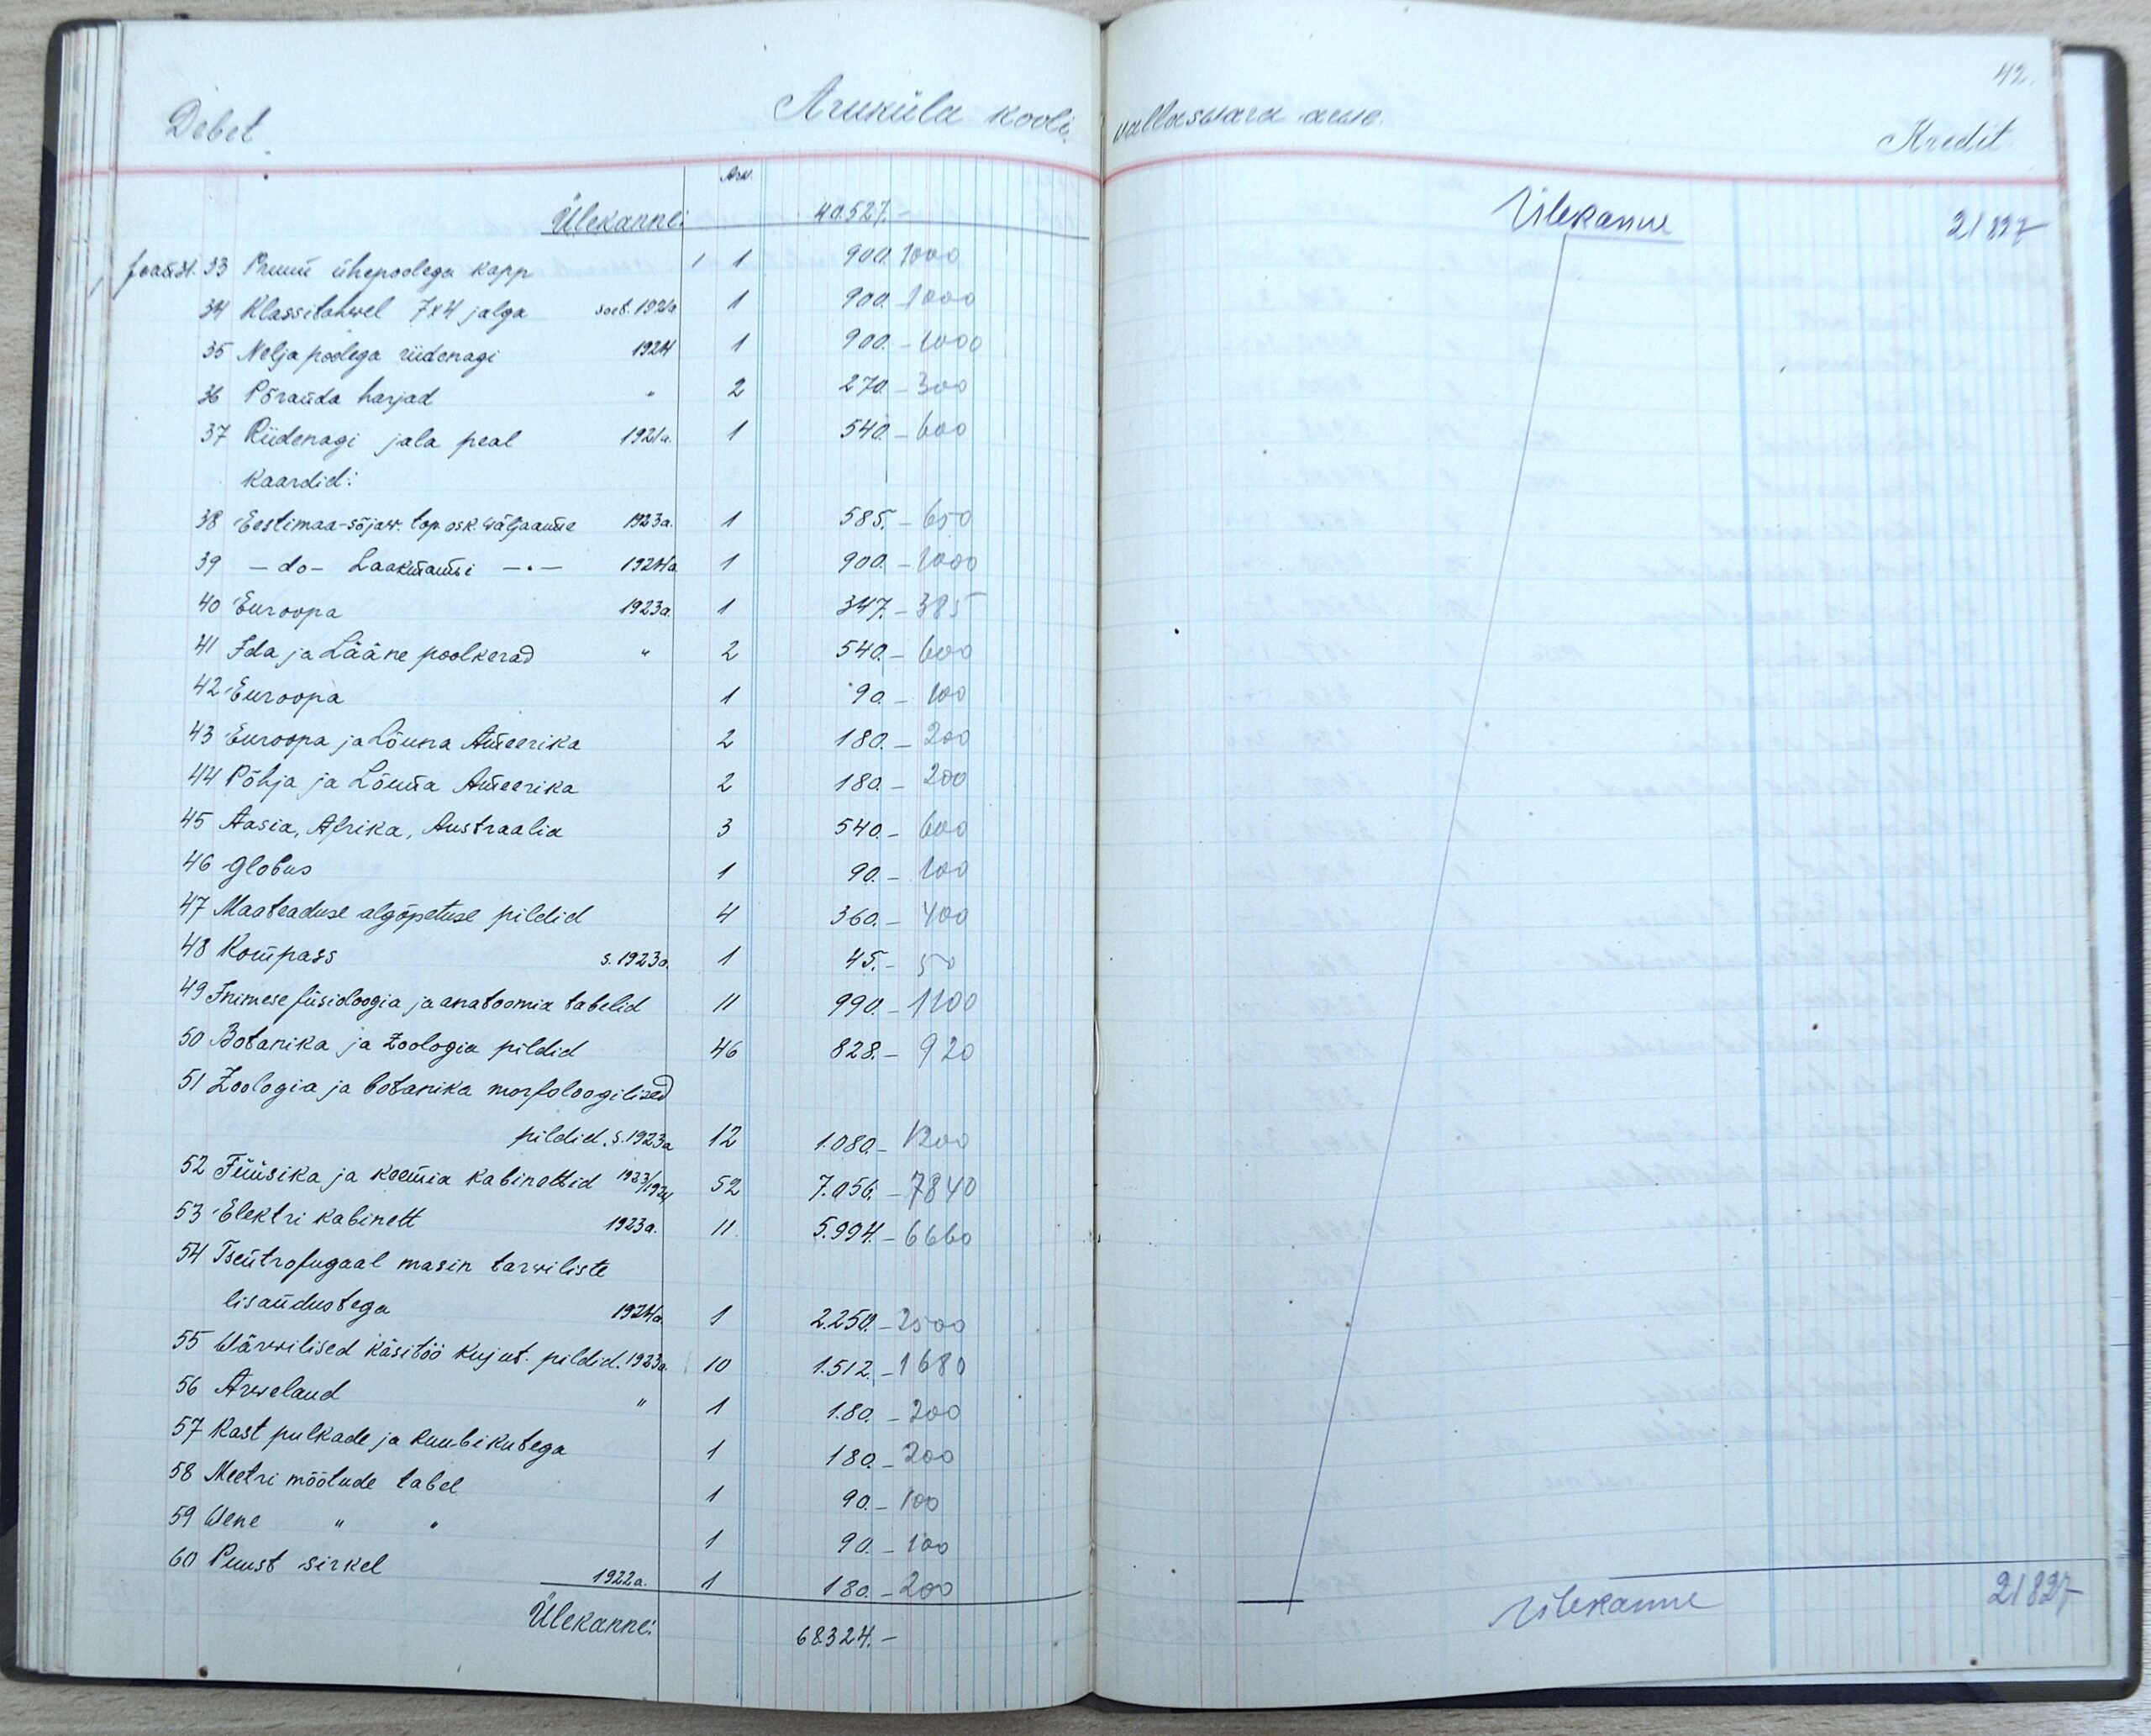 Debet
Aruküla kooli
Arv.
Ülekanne: 40.527.-
Jaan. 31. 33 Pruun ühepoolega kapp 1 900. 1000
34 Klassitahwel 7x4 jalga soet. 1924a 1 900. - 1000
35 Nelja poolega riidenagi 1924 1 900. - 1000
36 Põranda harjad " 2 270. - 300
37 Riidenagi jala peal 1921a. 1 540. - 600
Kaardid:
38 Eestimaa-sõjaw. top. osk. wäljaanne 1923a. 1 585. - 650
39 - do - Laakmanni - . - 1924a 1 900. - 1000
40 Euroopa 1923a. 1 347. - 385
41 Ida ja Lääne poolkerad " 2 540. - 600
42 Euroopa 1 90. - 100
43 Euroopa ja Lõuna Ameerika 2 180. - 200
44 Põhja ja Lõuna Ameerika 2 180. - 200
45 Aasia, Afrika, Austraalia 3 540. - 600
46 Globus 1 90. - 100
47 Maateaduse algõpetuse pildid 4 360. - 400
48 Kompass s. 1923a. 1 45. - 50
49 Inimese füsioloogia ja anatoomia tabelid 11 990. - 1100
50 Botanika ja Zoologia pildid 46 828. - 920
51 Zoologia ja botanika morfoloogilised
pildid. s. 1923a 12 1.080. - 1200
52 Füüsika ja keemia kabinettid 1923/1924 52 7.056. - 7840
53 Elektri kabinett 1923a. 11. 5.994. - 6660
54 Tsentrofugaal masin tarwiliste
lisandustega 1924a 1 2.250. - 2500
55 Wärwilised käsitöö kujut. pildid. 1923a. 10 1.512. - 1680
56 Arwelaud " 1 1.80. - 200
57 Kast pulkade ja kuubikutega 1 180. - 200
58 Meetri mõõtude tabel 1 90. - 100
59 Wene " " 1 90. - 100
60 Puust sirkel 1922a. 1 180. - 200
Ülekanne: 68324.-
42.
vallaswara arwe.
Kredit
Ülekanne 21827
Ülekanne 21827